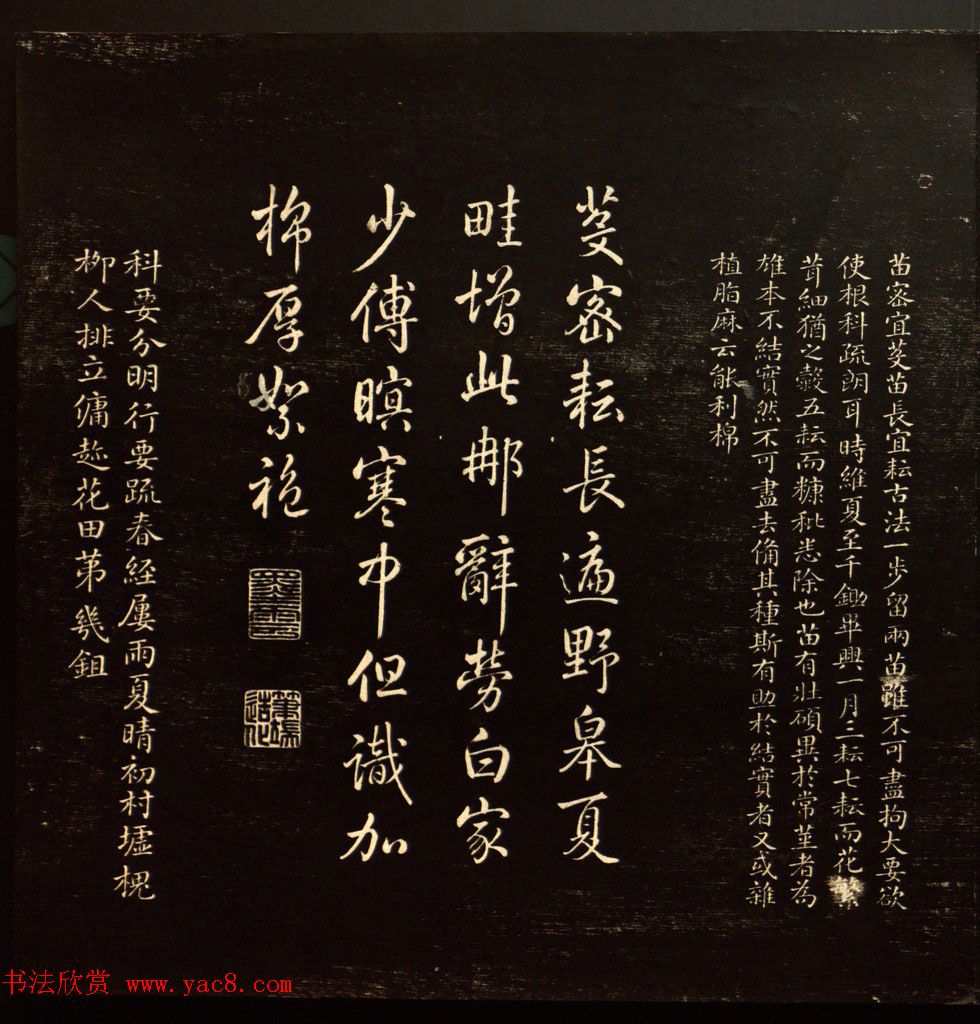 苗密宜芟苗長宜耘古法一步留兩苗雖不可盡拘大要欲
使根科疏朗耳時維夏至千鋤畢興一月三耘七耘而花繁
茸細猶之穀五耘而糠秕悉除也苗有壯碩異於常莖者為
雄本不結實然不可盡去備其種斯有助於結實者又或雜
植脂麻云能利棉
芟密耘長遍野皋夏
畦增此那辭勞白家
少傅暝寒中但識加
棉厚絮袍
筆端造化
科要分明行要疏春經屢雨夏晴初村墟槐
柳人排立傭趂花田第幾鉏
书法欣赏 www.yac8.com